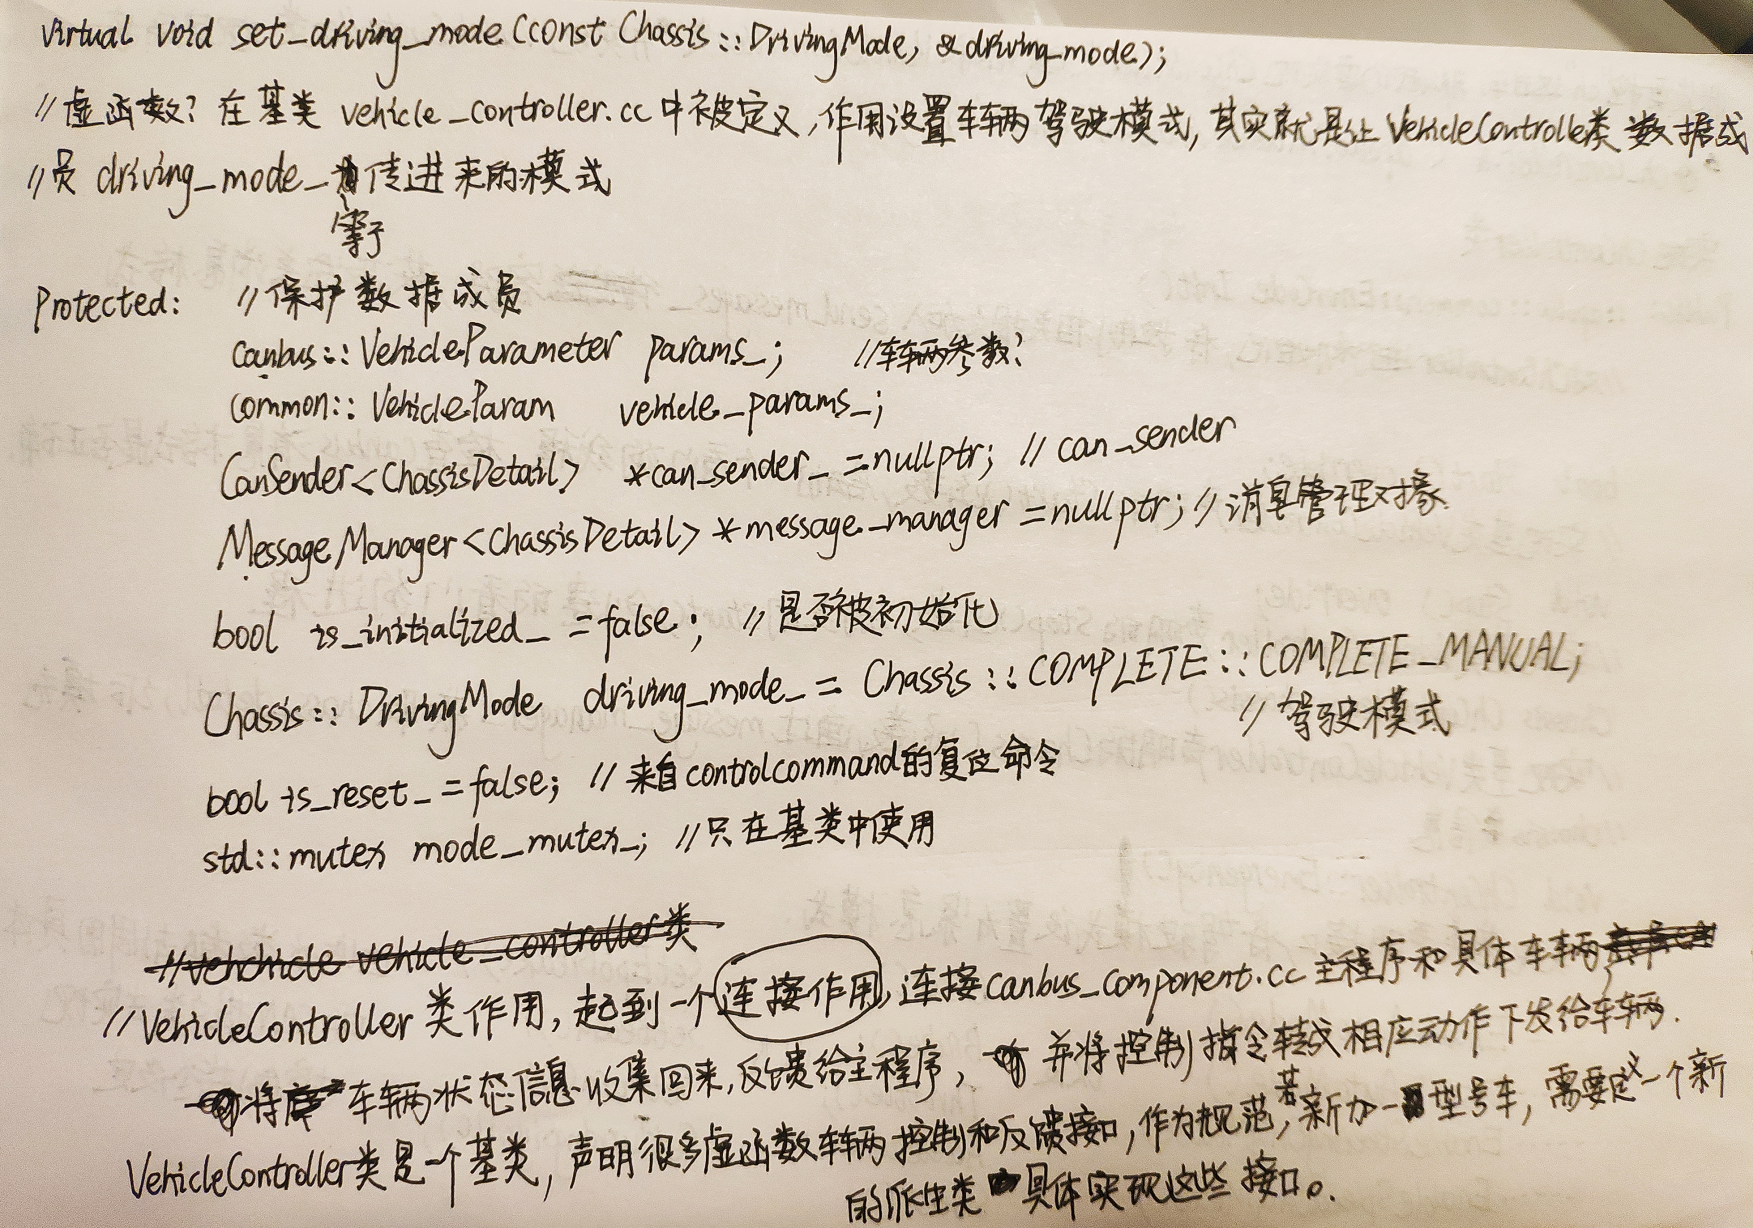 Virtual void set_driving_mode(const Chassis::DrivingMode, &driving_mode);
//虚函数?在基类 vehicle_controller.cc中被定义,作用设置车辆驾驶模式,其实就是让VehicleController类数据成
//员 driving_mode_ 传进来的模式
等于
Protected: //保护数据成员
canbus::VehicleParameter params_; //车辆参数?
common::VehicleParam vehicle_params_;
CanSender<ChassisDetail> *can_sender_=nullptr; // can_sender
MessageManager<ChassisDetail> *message_manager=nullptr; //消息管理对象
bool is_initialized_=false; //是否被初始化
Chassis::DrivingMode driving_mode_= Chassis::COMPLETE::COMPLETE_MANUAL;
//驾驶模式
bool is_reset_=false; //来自controlcommand的复位命令
std::mutex mode_mutex_; //只在基类中使用
//vehchicle vehicle_controller类
//VehicleController类作用,起到一个连接作用,连接canbus_component.cc主程序和具体车辆
将 车辆状态信息收集回来,反馈给主程序, 并将控制指令转成相应动作下发给车辆.
VehicleController类是一个基类,声明很多虚函数车辆控制和反馈接口,作为规范,若新加一型号车,需要定义一个新
的派生类 具体实现这些接口。